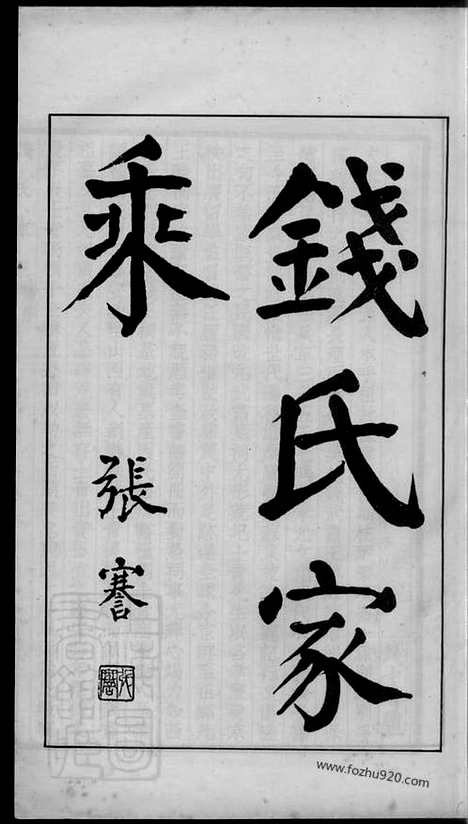 錢氏家
乘
張謇
張謇
www.fozhu920.com